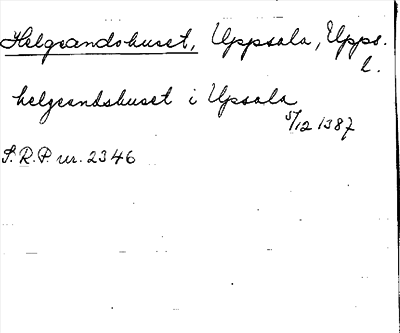 Helgeandshuset, Uppsala, Upps.
l.
helgeandshuset i Upsala
5/12 1387
S.R.P. nr. 2346